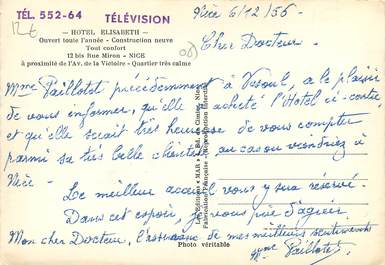 TÉL. 552-64 TÉLÉVISION
— HOTEL ELISABETH —
Ouvert toute l'année - Construction neuve
Tout confort
12 bis Rue Miron - NICE
à proximité de l'Av. de la Victoire - Quartier très calme
Nice 6/12/56
(06)
Cher Docteur.
Mme Paillotet précédemment à Vesoul, a le plaisir
de vous informer, qu'elle a acheté l'Hotel ci-contre
et qu'elle serait très heureuse de vous compter
parmi sa très belle clientèle au cas ou viendriez à
Nice -
Le meilleur accueil vous y sera réservé.
Dans cet espoir, je vous prie d'agréer
Mon cher Docteur, l'assurance de mes meilleurs sentiments
Mme Paillotet
Photo véritable
Les Editions "MAR"
Fabrication Française - Reproduction Interdite